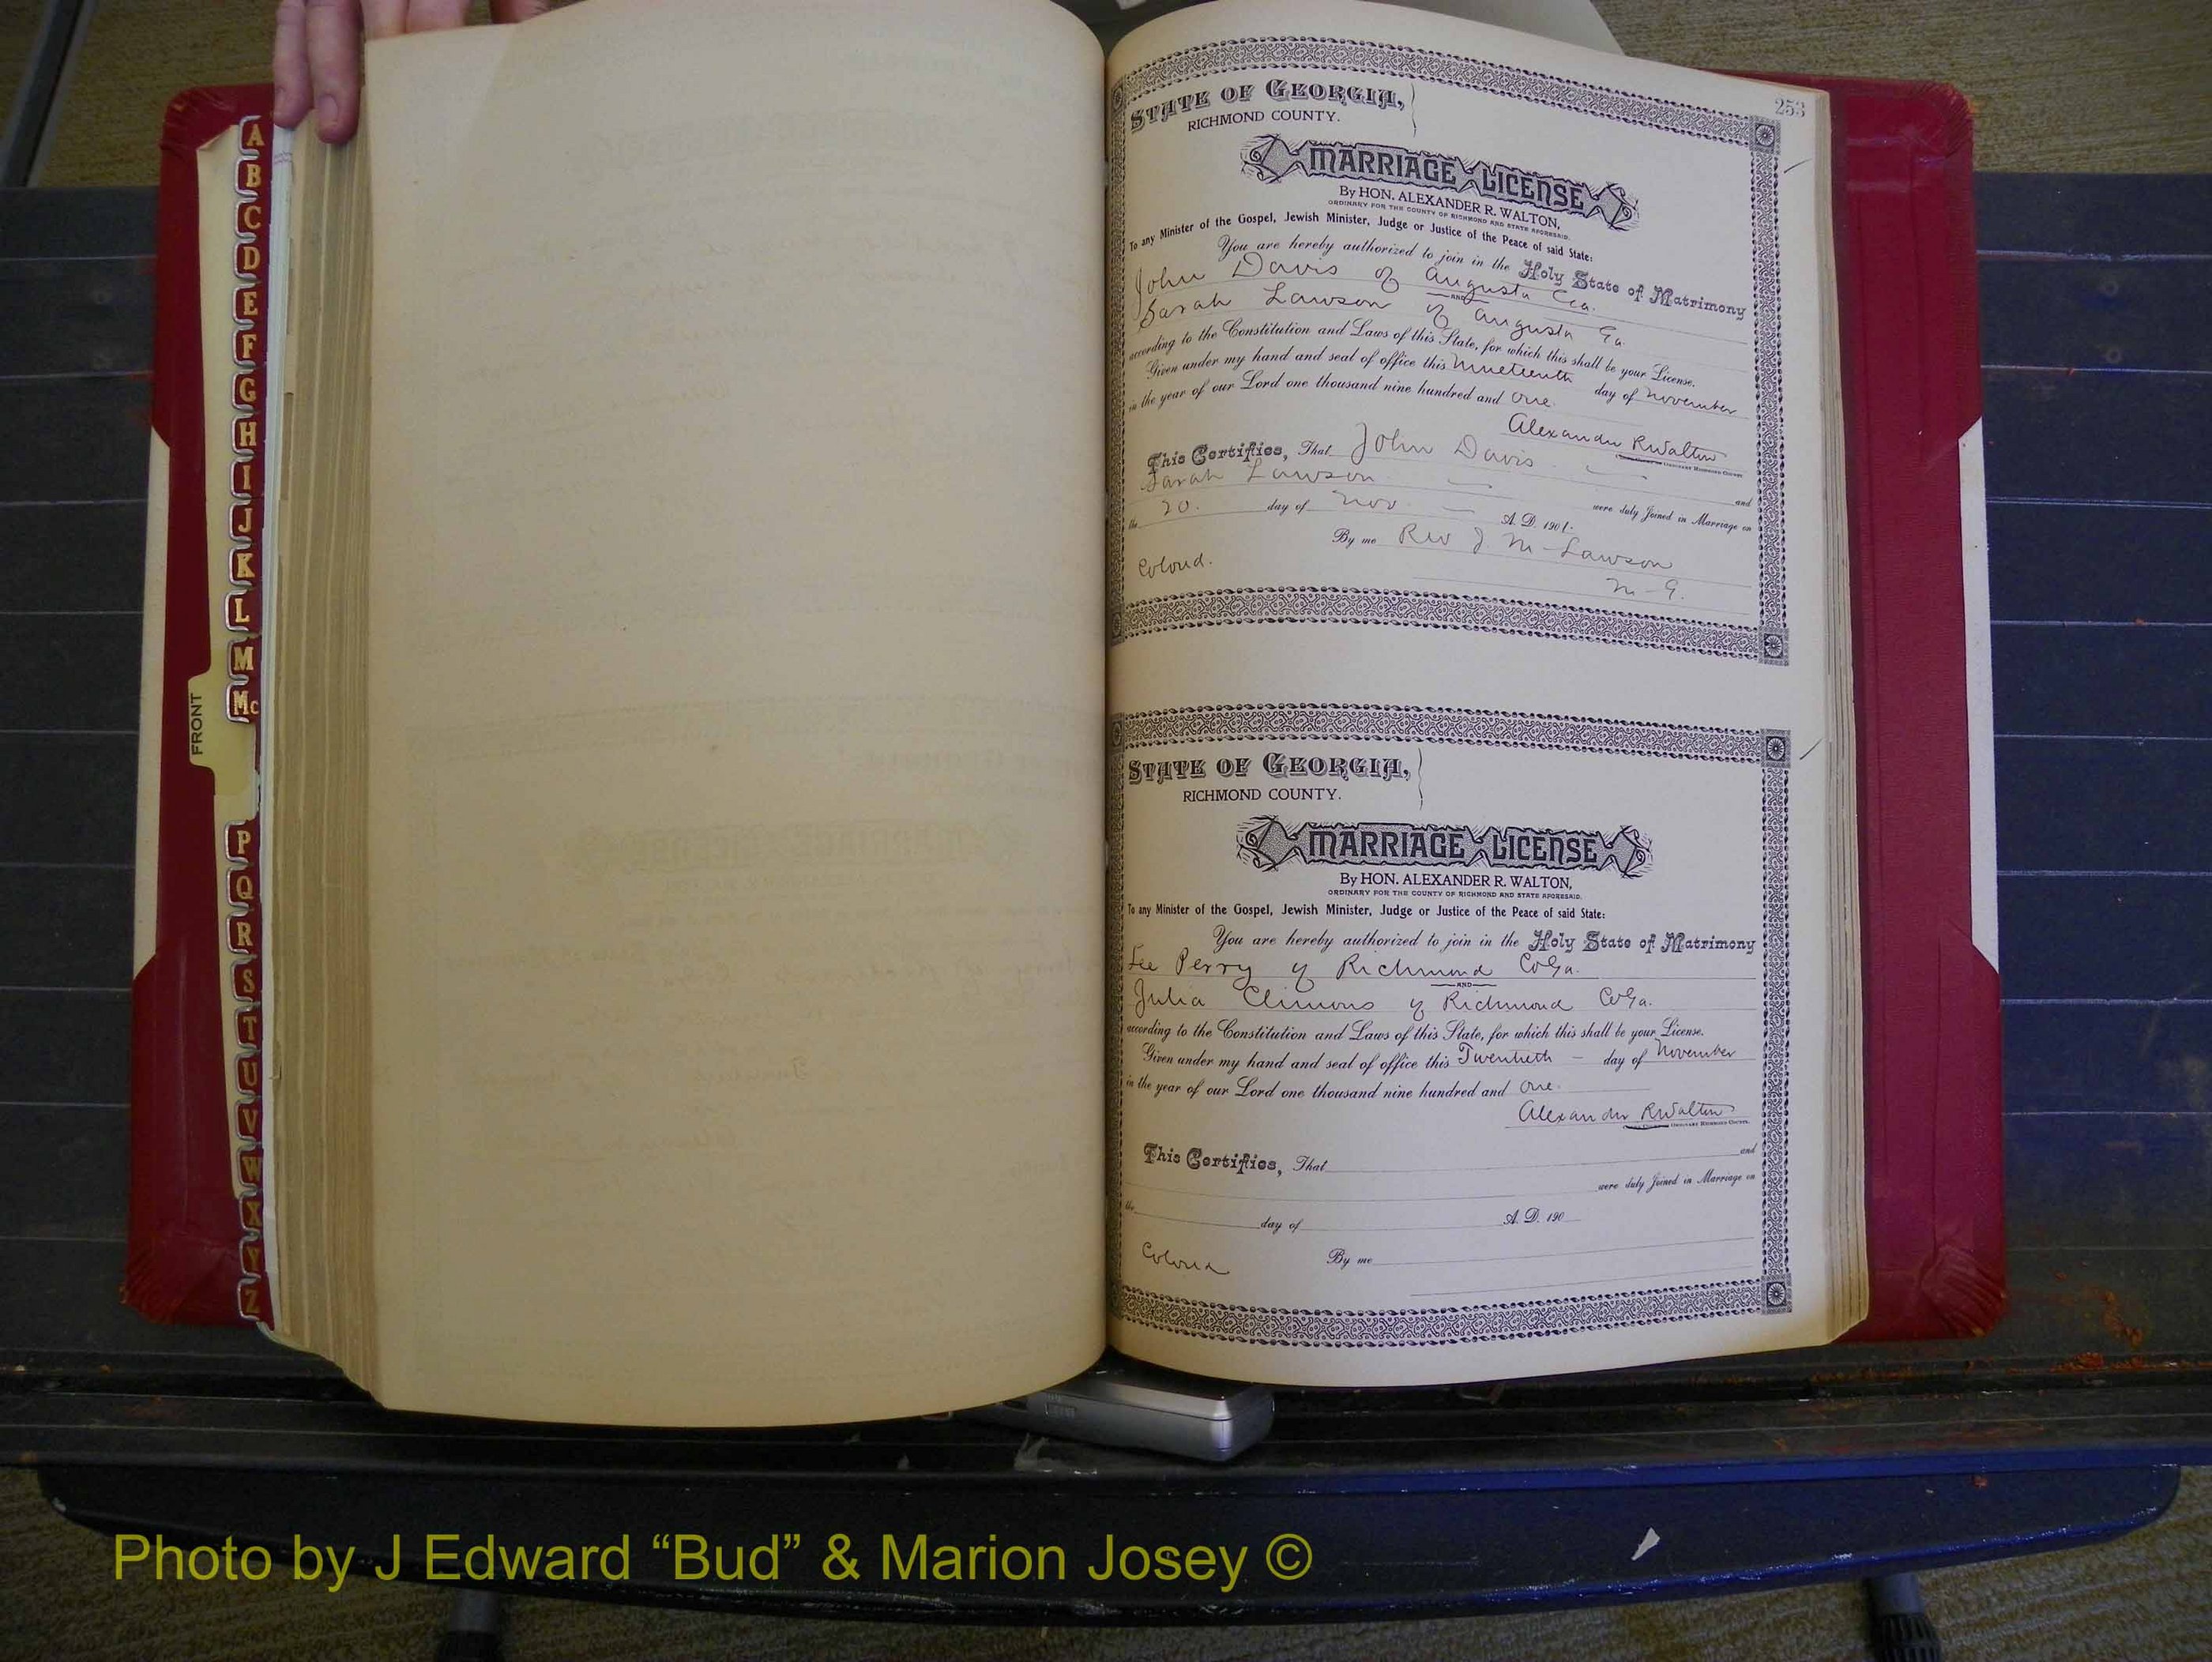 A
B
C
D
E
F
G
H
I
J
K
L
M
Mc
FRONT
P
Q
R
S
T
U
V
W
X
Y
Z
253
STATE OF GEORGIA,
RICHMOND COUNTY.
MARRIAGE LICENSE
By HON. ALEXANDER R. WALTON,
ORDINARY FOR THE COUNTY OF RICHMOND AND STATE AFORESAID.
To any Minister of the Gospel, Jewish Minister, Judge or Justice of the Peace of said State:
You are hereby authorized to join in the Holy State of Matrimony
John Davis of Augusta Ga.
AND
Sarah Lawson of Augusta Ga.
according to the Constitution and Laws of this State, for which this shall be your License.
Given under my hand and seal of office this Nineteenth day of November
in the year of our Lord one thousand nine hundred and one.
Alexander R Walton
ORDINARY RICHMOND COUNTY
This Certifies, That John Davis and
Sarah Lawson were duly Joined in Marriage on
the 20. day of Nov A. D. 1901.
By me Rev J. M. Lawson
M-G.
Colored.
STATE OF GEORGIA,
RICHMOND COUNTY.
MARRIAGE LICENSE
By HON. ALEXANDER R. WALTON,
ORDINARY FOR THE COUNTY OF RICHMOND AND STATE AFORESAID.
To any Minister of the Gospel, Jewish Minister, Judge or Justice of the Peace of said State:
You are hereby authorized to join in the Holy State of Matrimony
Lee Perry of Richmond Co Ga.
AND
Julia Climons of Richmond Co Ga.
according to the Constitution and Laws of this State, for which this shall be your License.
Given under my hand and seal of office this Twentieth day of November
in the year of our Lord one thousand nine hundred and one.
Alexander R Walton
ORDINARY RICHMOND COUNTY.
This Certifies, That and
were duly Joined in Marriage on
the day of A. D. 190
Colored By me
Photo by J Edward “Bud” & Marion Josey ©